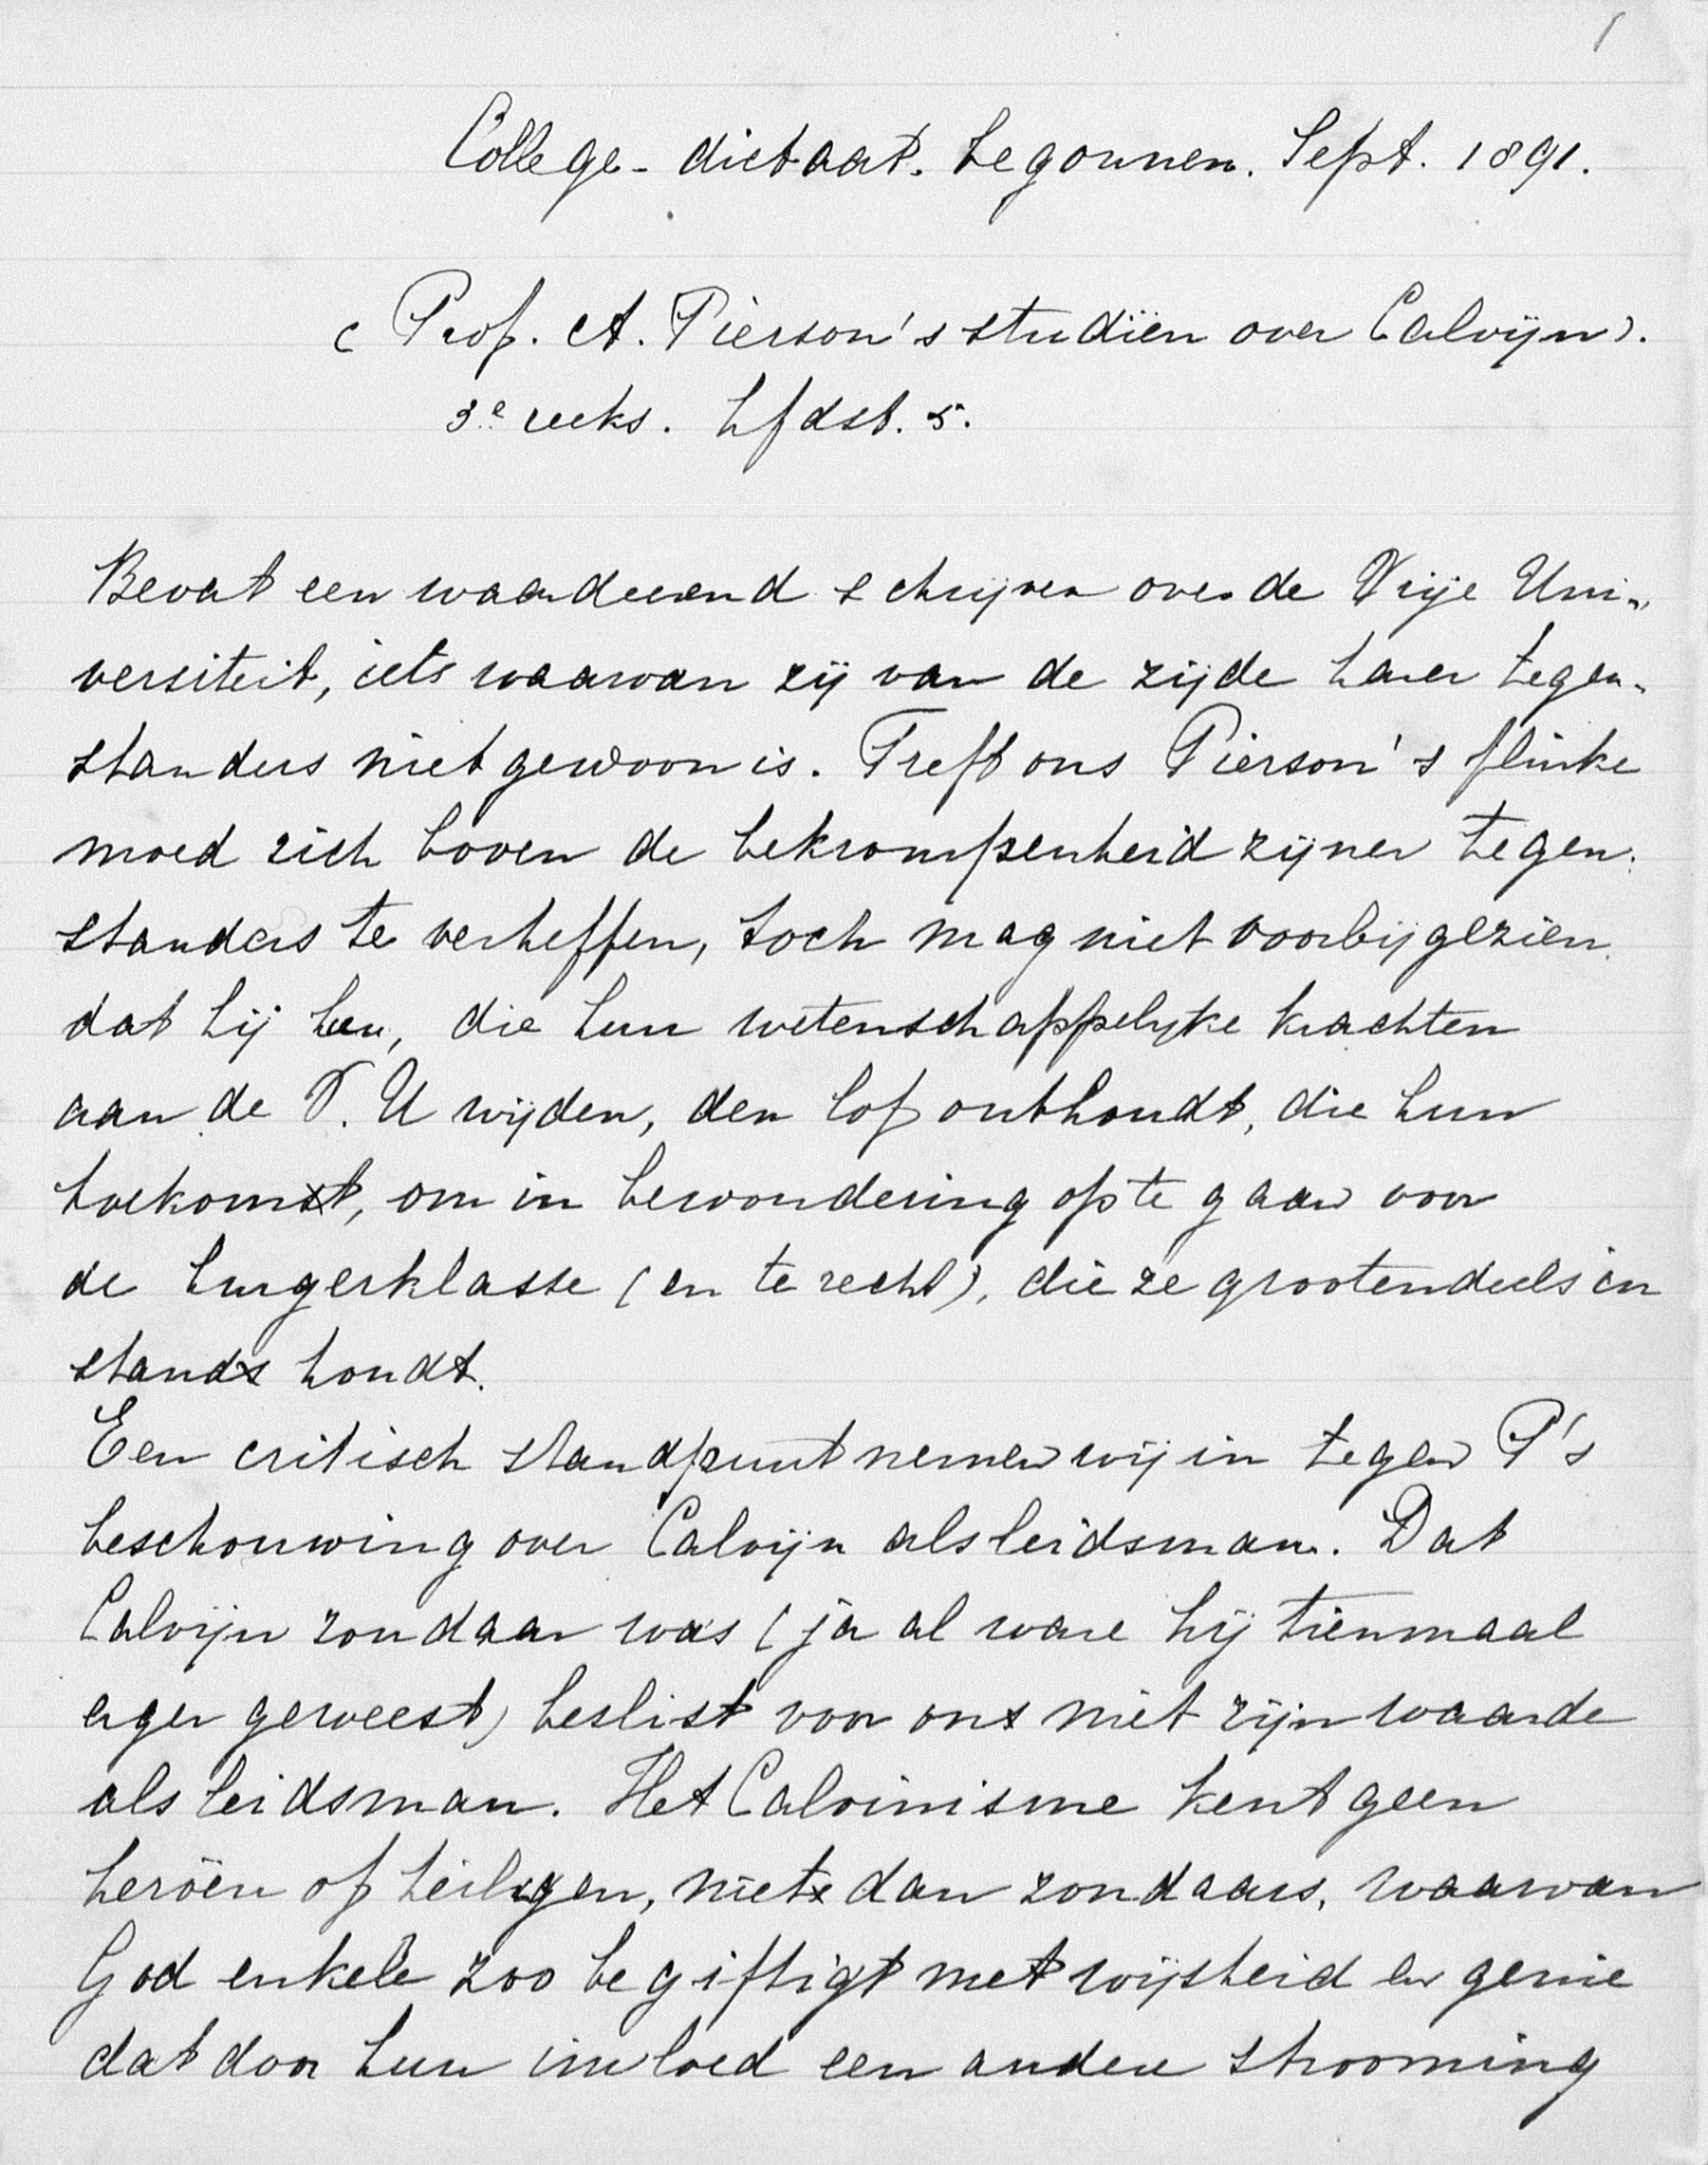 1
College-dictaat. begonnen. Sept. 1891.
(Prof. A. Pierson's studiën over Calvijn).
3e reeks. hfdst. 5.
Bevat een waardeerend schrijven over de Vrije Uni-
versiteit, iets waarvan zij van de zijde harer tegen-
standers niet gewoon is. Treft ons Pierson's flinke
moed zich boven de bekrompenheid zijner tegen-
standers te verheffen, toch mag niet voorbijgezien
dat hij hen, die hun wetenschappelijke krachten
aan de V. U wijden, den lof onthoudt, die hun
toekomt, om in bewondering op te gaan voor
de burgerklasse (en te recht), die ze grootendeels in
stand houdt.
Een critisch standpunt nemen wij in tegen P's
beschouwing over Calvijn als leidsman. Dat
Calvijn zondaar was (ja al ware hij tienmaal
erger geweest) beslist voor ons niet zijn waarde
als leidsman. Het Calvinisme kent geen
heroën of heiligen, niet dan zondaars, waarvan
God enkele zoo begiftigt met wijsheid en genie
dat door hun invloed een andere strooming